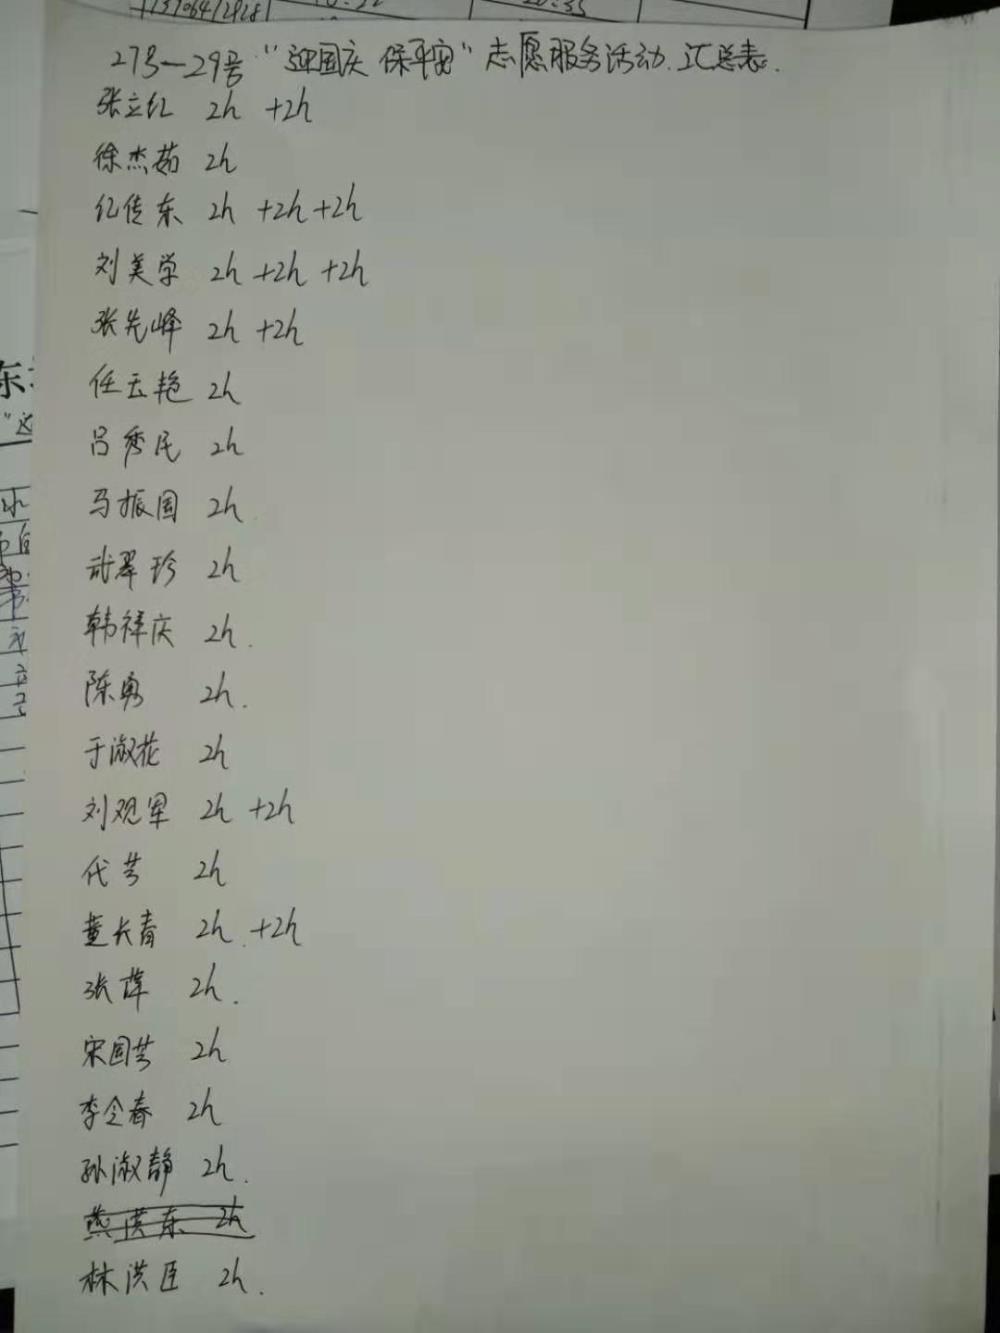 13706412928
20:35
27号-29号 "迎国庆 保平安" 志愿服务活动.汇总表.
张立红 2h +2h
徐杰茹 2h
纪传东 2h +2h +2h
刘美学 2h +2h +2h
张先峰 2h +2h
任云艳 2h
吕秀民 2h
马振国 2h.
翠珍 2h
韩祥庆 2h.
陈勇 2h.
于淑花 2h
刘观军 2h +2h
代芹 2h
董长青 2h. +2h
张萍 2h.
宋国芳 2h
李全春 2h
孙淑静 2h.
燕洪东 2h
林洪臣 2h.
东